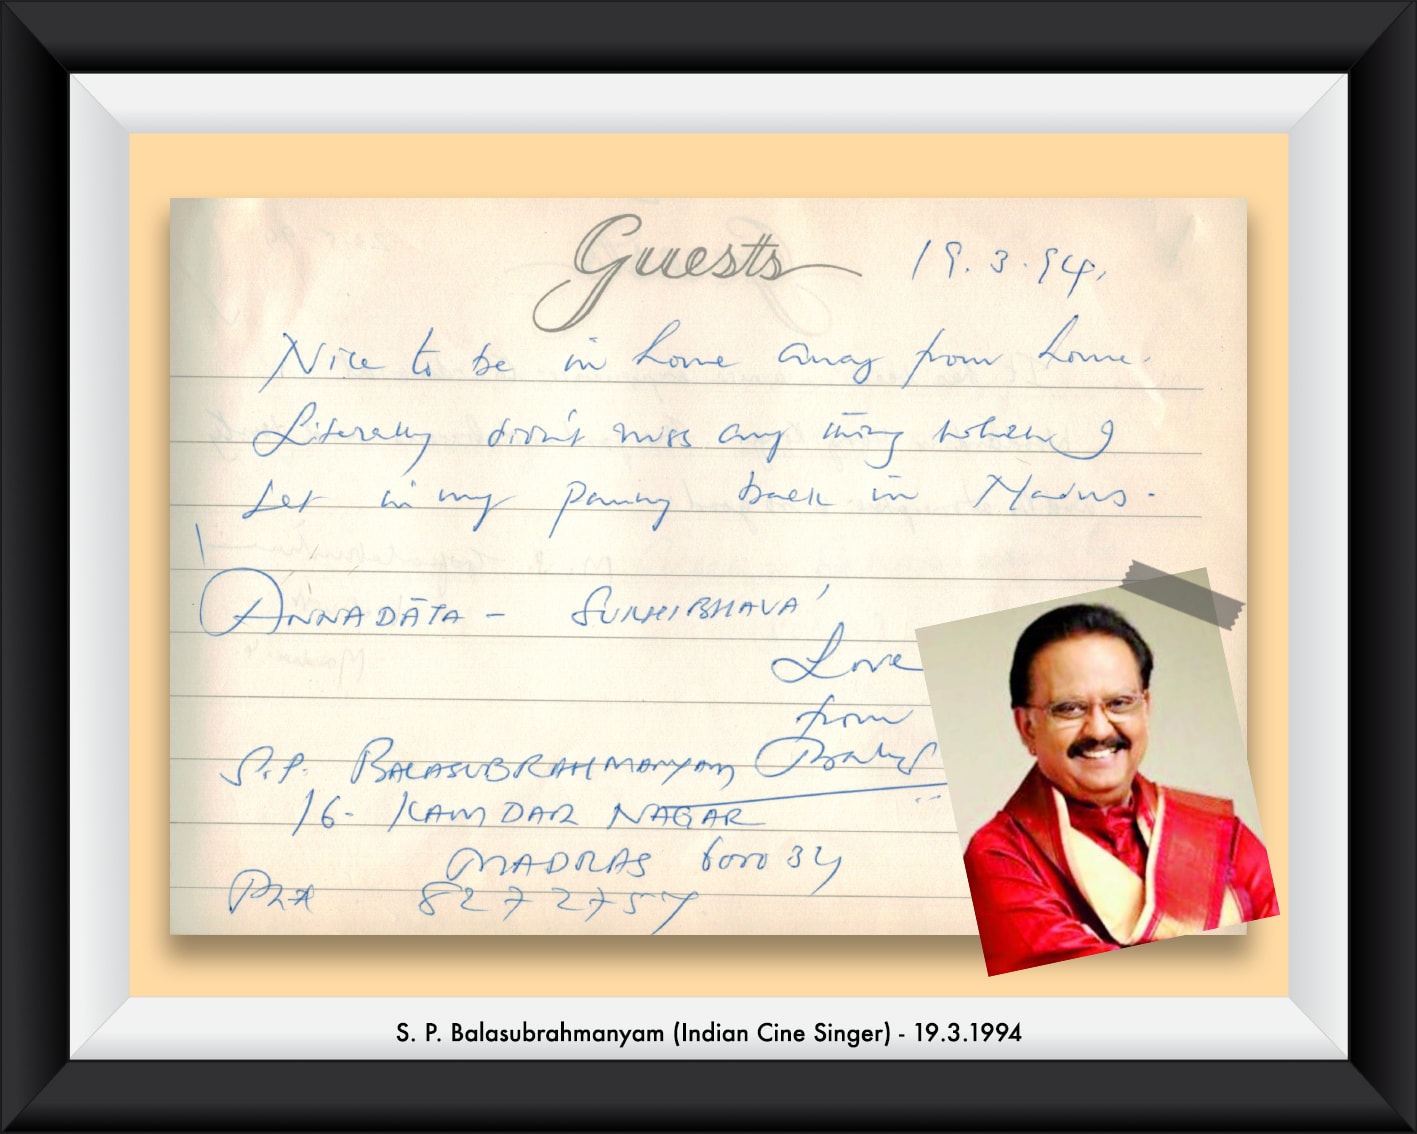 Guests
19.3.94.
Nice to be in home away from home.
Literally didn't miss any thing when I
Let in my back in Madras.
ANNADĀTA - SUKHIBHAVA'
Love
from
S.P. BALASUBRAHMANYAM
16- KAMDAR NAGAR
MADRAS 600034
8272757
S. P. Balasubrahmanyam (Indian Cine Singer) - 19.3.1994